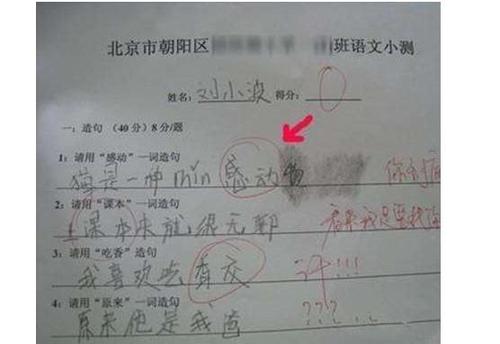 北京市朝阳区 班语文小测
姓名：刘小波 得分：0
一：造句（40分）8分/题
1：请用“感动”一词造句
猫是一种min感动物
2：请用“课本”一词造句
课本来就很无聊
3：请用“吃香”造句
我喜欢吃香交
4：请用“原来”一词造句
原来他是我爸
你才
看来我是要找你
汗!!!
???..